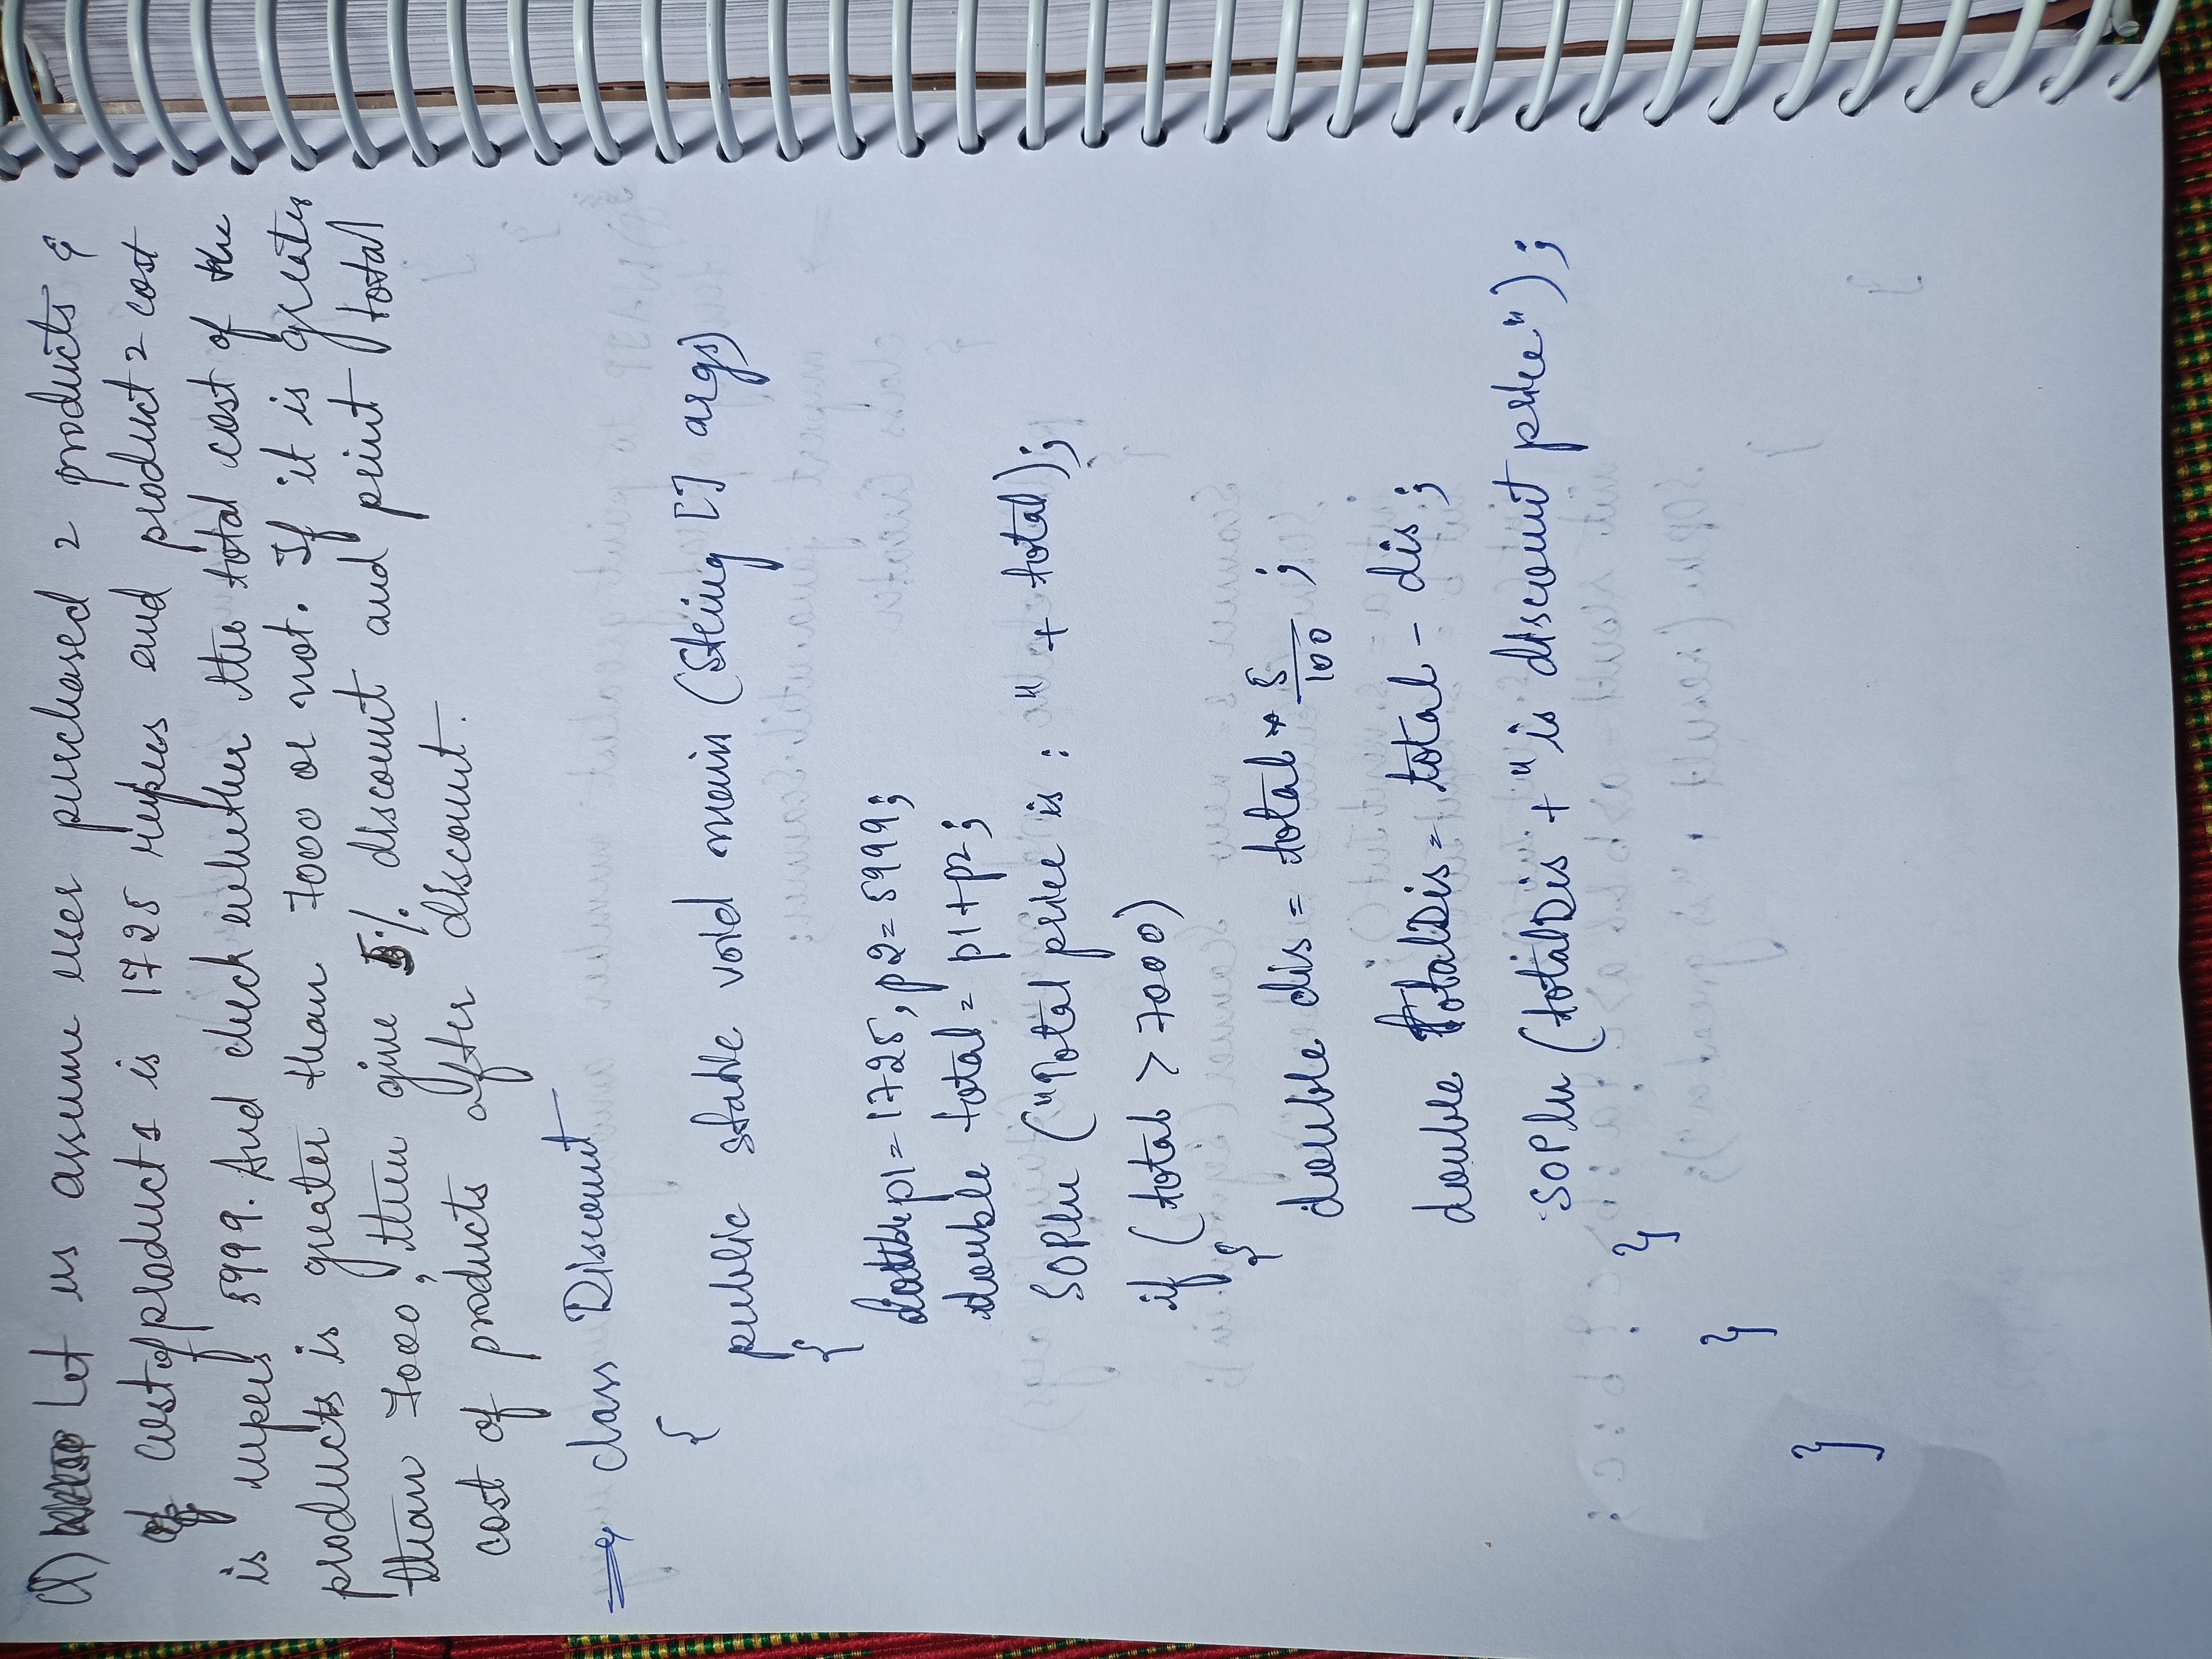 Q) Let us assume user purchased 2 products &
cost of product 1 is 1725 rupees and product 2 cost
is rupees 5999. And check whether the total cost of the
products is greater than 7000 or not. If it is greater
than 7000, then give 5% discount and print total
cost of products after discount.
class Discount
{
public static void main (String [] args)
{
double p1 = 1725, p2 = 5999;
double total = p1 + p2;
SOPln ("Total price is : " + total);
if (total > 7000)
{
double dis = total * 5/100 ;
double totalDis = total - dis ;
SOPln (totalDis + " is discount price") ;
}
}
}